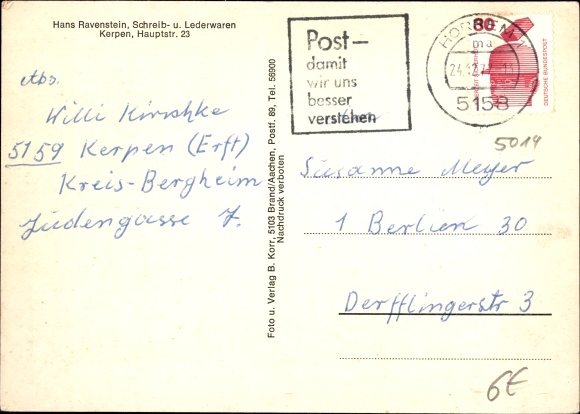 Hans Ravenstein, Schreib- u. Lederwaren
Kerpen, Hauptstr. 23
Abs.
Willi Kirschke
5159 Kerpen (Erft)
Kreis-Bergheim
Judengasse 7.
Foto u. Verlag B. Korr, 5103 Brand/Aachen, Postf. 89, Tel. 56900
Nachdruck verboten
Post-
damit
wir uns
besser
verstehen
HORREM 1
ma
24.12.7
5158
80
DEUTSCHE BUNDESPOST
5014
Susanne Meyer
1 Berlien 30
Derfflingerstr 3
6€